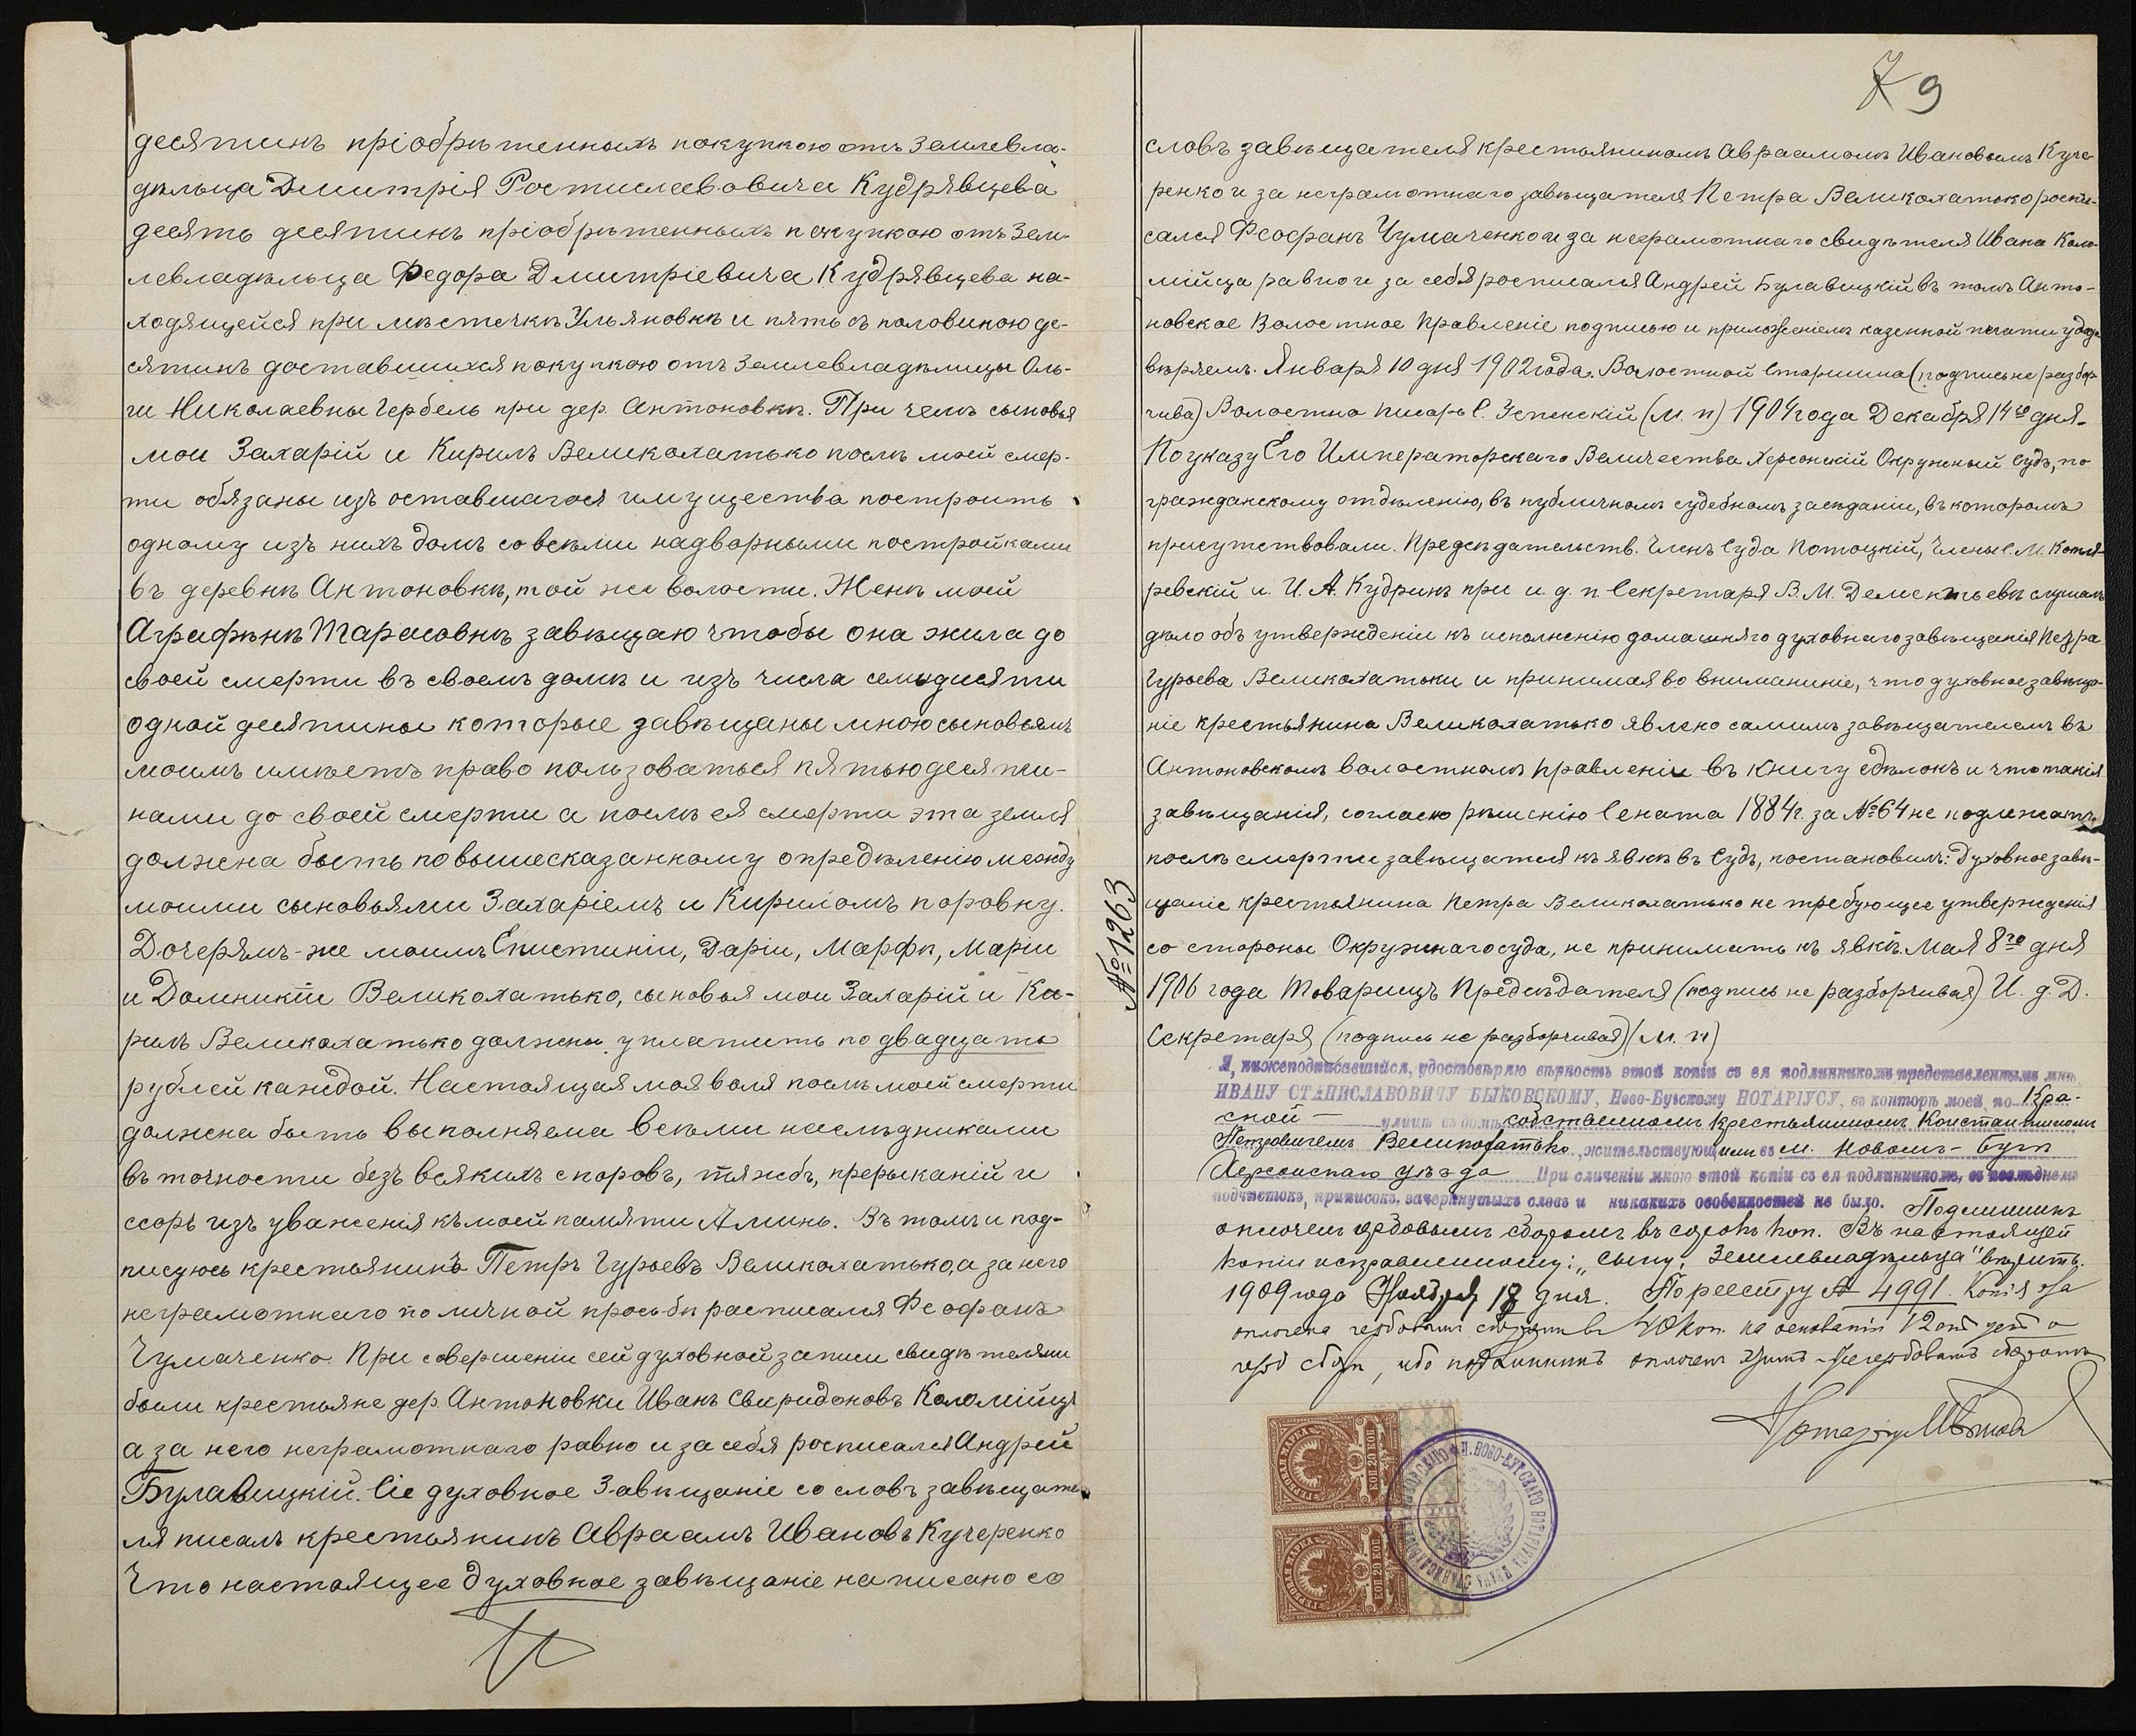 десятинъ пріобрѣтенныхъ покупкою отъ Землевла-
дѣльца Дмитрія Ростиславовича Кудрявцева
десять десятинъ пріобрѣтенныхъ покупкою отъ Зем-
левладѣльца Федора Дмитріевича Кудрявцева на-
ходящейся при мѣстечкѣ Ульяновкѣ и пять съ половиною де-
сятинъ доставшихся покупкою отъ Землевладѣлицы Оль-
ги Николаевны Гербель при дер. Антоновкѣ. При чемъ сыновья
мои Захарій и Кирилъ Великохатько послѣ моей смер-
ти обязаны изъ оставшагося имущества построить
одному изъ нихъ домъ со всѣми надворными постройками
въ деревнѣ Антоновкѣ, той же волости. Женѣ моей
Аграфѣнѣ Тарасовнѣ завѣщаю чтобы она жила до
своей смерти въ своемъ домѣ и изъ числа семидесяти
одной десятины которые завѣщаны мною сыновьямъ
моимъ имѣетъ право пользоваться пятью десяти-
нами до своей смерти а послѣ ея смерти эта земля
должна быть по вышесказанному опредѣленію между
моими сыновьями Захаріемъ и Кириломъ поровну.
Дочерямъ-же моимъ Епистиніи, Даріи, Марфѣ, Маріи
и Домникіи Великохатько, сыновья мои Захарій и Ки-
рилъ Великохатько должны уплатить по двадцать
рублей каждой. Настоящая моя воля послѣ моей смерти
должна быть выполняема всѣми наслѣдниками
въ точности безъ всякихъ споровъ, тяжбъ, прерыканій и
ссоръ изъ уваженія къ моей памяти Аминь. Въ томъ и под-
писуюсь крестьянинъ Петръ Гурьевъ Великохатько, а за него
неграмотнаго по личной просьбѣ расписался Феофанъ
Чумаченко. При совершеніи сей духовной записи свидѣтелями
были крестьяне дер. Антоновки Иванъ Свиридоновъ Коломійцъ
а за него неграмотнаго равно и за себя росписался Андрей
Булавицкій. Сіе духовное Завѣщаніе со словъ завѣщате
ля писалъ крестьянинъ Авраамъ Ивановъ Кучеренко
Что настоящее духовное завѣщаніе написано со
79
словъ завѣщателя крестьяниномъ Авраамомъ Ивановымъ Куче-
ренко и за неграмотнаго завѣщателя Петра Великохатько роспи-
сался Феофанъ Чумаченко и за неграмотнаго свидѣтеля Ивана Коло-
мійца равно и за себя росписался Андрей Булавицкій въ томъ Анто-
новское Волостное Правленіе подписью и приложеніемъ казенной печати удосто
вѣряемъ. Января 10 дня 1902 года. Волостной Старшина (подпись не разбор-
чива) Волостно писарь С. (М. п) 1904 года Декабря 14го дня.
По указу Его Императорскаго Величества Херсонскій Окружный Судъ, по
гражданскому отдѣленію, въ публичномъ судебномъ засѣданіи, въ которомъ
присутствовали. Предсѣдательств. Членъ Суда Потоцкій, Члены С. М. Котля-
ревскій и. И. А. Кудринъ при и. д. п. Секретаря В. М. Дементьевѣ слушалъ
дѣло объ утвержденіи къ исполненію домашняго духовнаго завѣщанія Петра
Гурьева Великохатьки и принимая во вниманиніе, что духовное завѣща-
ніе крестьянина Великохатько явлено самимъ завѣщателемъ въ
Антоновскомъ волостномъ правленіи въ книгу сдѣлокъ и что такія
завѣщанія, согласно рѣшенію Сената 1884г. за № 64 не подлежатъ
послѣ смерти завѣщателя къ явкѣ въ Судъ, постановилъ: Духовное завѣ-
щаніе крестьянина Петра Великохатько не требующее утвержденія
со стороны Окружнаго суда, не принимать къ явкѣ. Мая 8го дня
1906 года Товарищъ Предсѣдателя (подпись не разборчивая) И. д. Д.
Секретаря (подпись не разборчивая) (м. п)
№ 1263
Я, нижеподписавшійся, удостовѣряю вѣрность этой копіи съ ея подлинникомъ представленнымъ мнѣ,
ИВАНУ СТАНИСЛАВОВИЧУ БЫКОВСКОМУ, Ново-Бугскому НОТАРІУСУ, въ конторѣ моей, по Кра-
ской – улицѣ въ домѣ собственномъ крестьяниномъ Константиномъ
Петровичемъ Великохатько, жительствующимъ въ м. Новомъ-Бугѣ
Херсонскаго уѣзда При сличеніи мною этой копіи съ ея подлинникомъ, въ послѣднемъ
подчистокъ, приписокъ, зачеркнутыхъ словъ и никакихъ особенностей не было. Подлинникъ
оплоченъ гербовымъ сборомъ въ сорокъ коп. Въ настоящей
копіи исправленному: „сыну, Землевладѣльца" вѣрить.
1909 года Ноября 18 дня. По реестру № 4991. Копія эта
оплочена гербовымъ сборомъ въ 40 коп. на основаніи 12 ст уст о
герб сборѣ, ибо подлинникъ оплоченъ гербовымъ сборомъ
Нотаріусъ
ГЕРБОВАЯ МАРКА
КОП 20 КОП
ГЕРБОВАЯ МАРКА
КОП 20 КОП